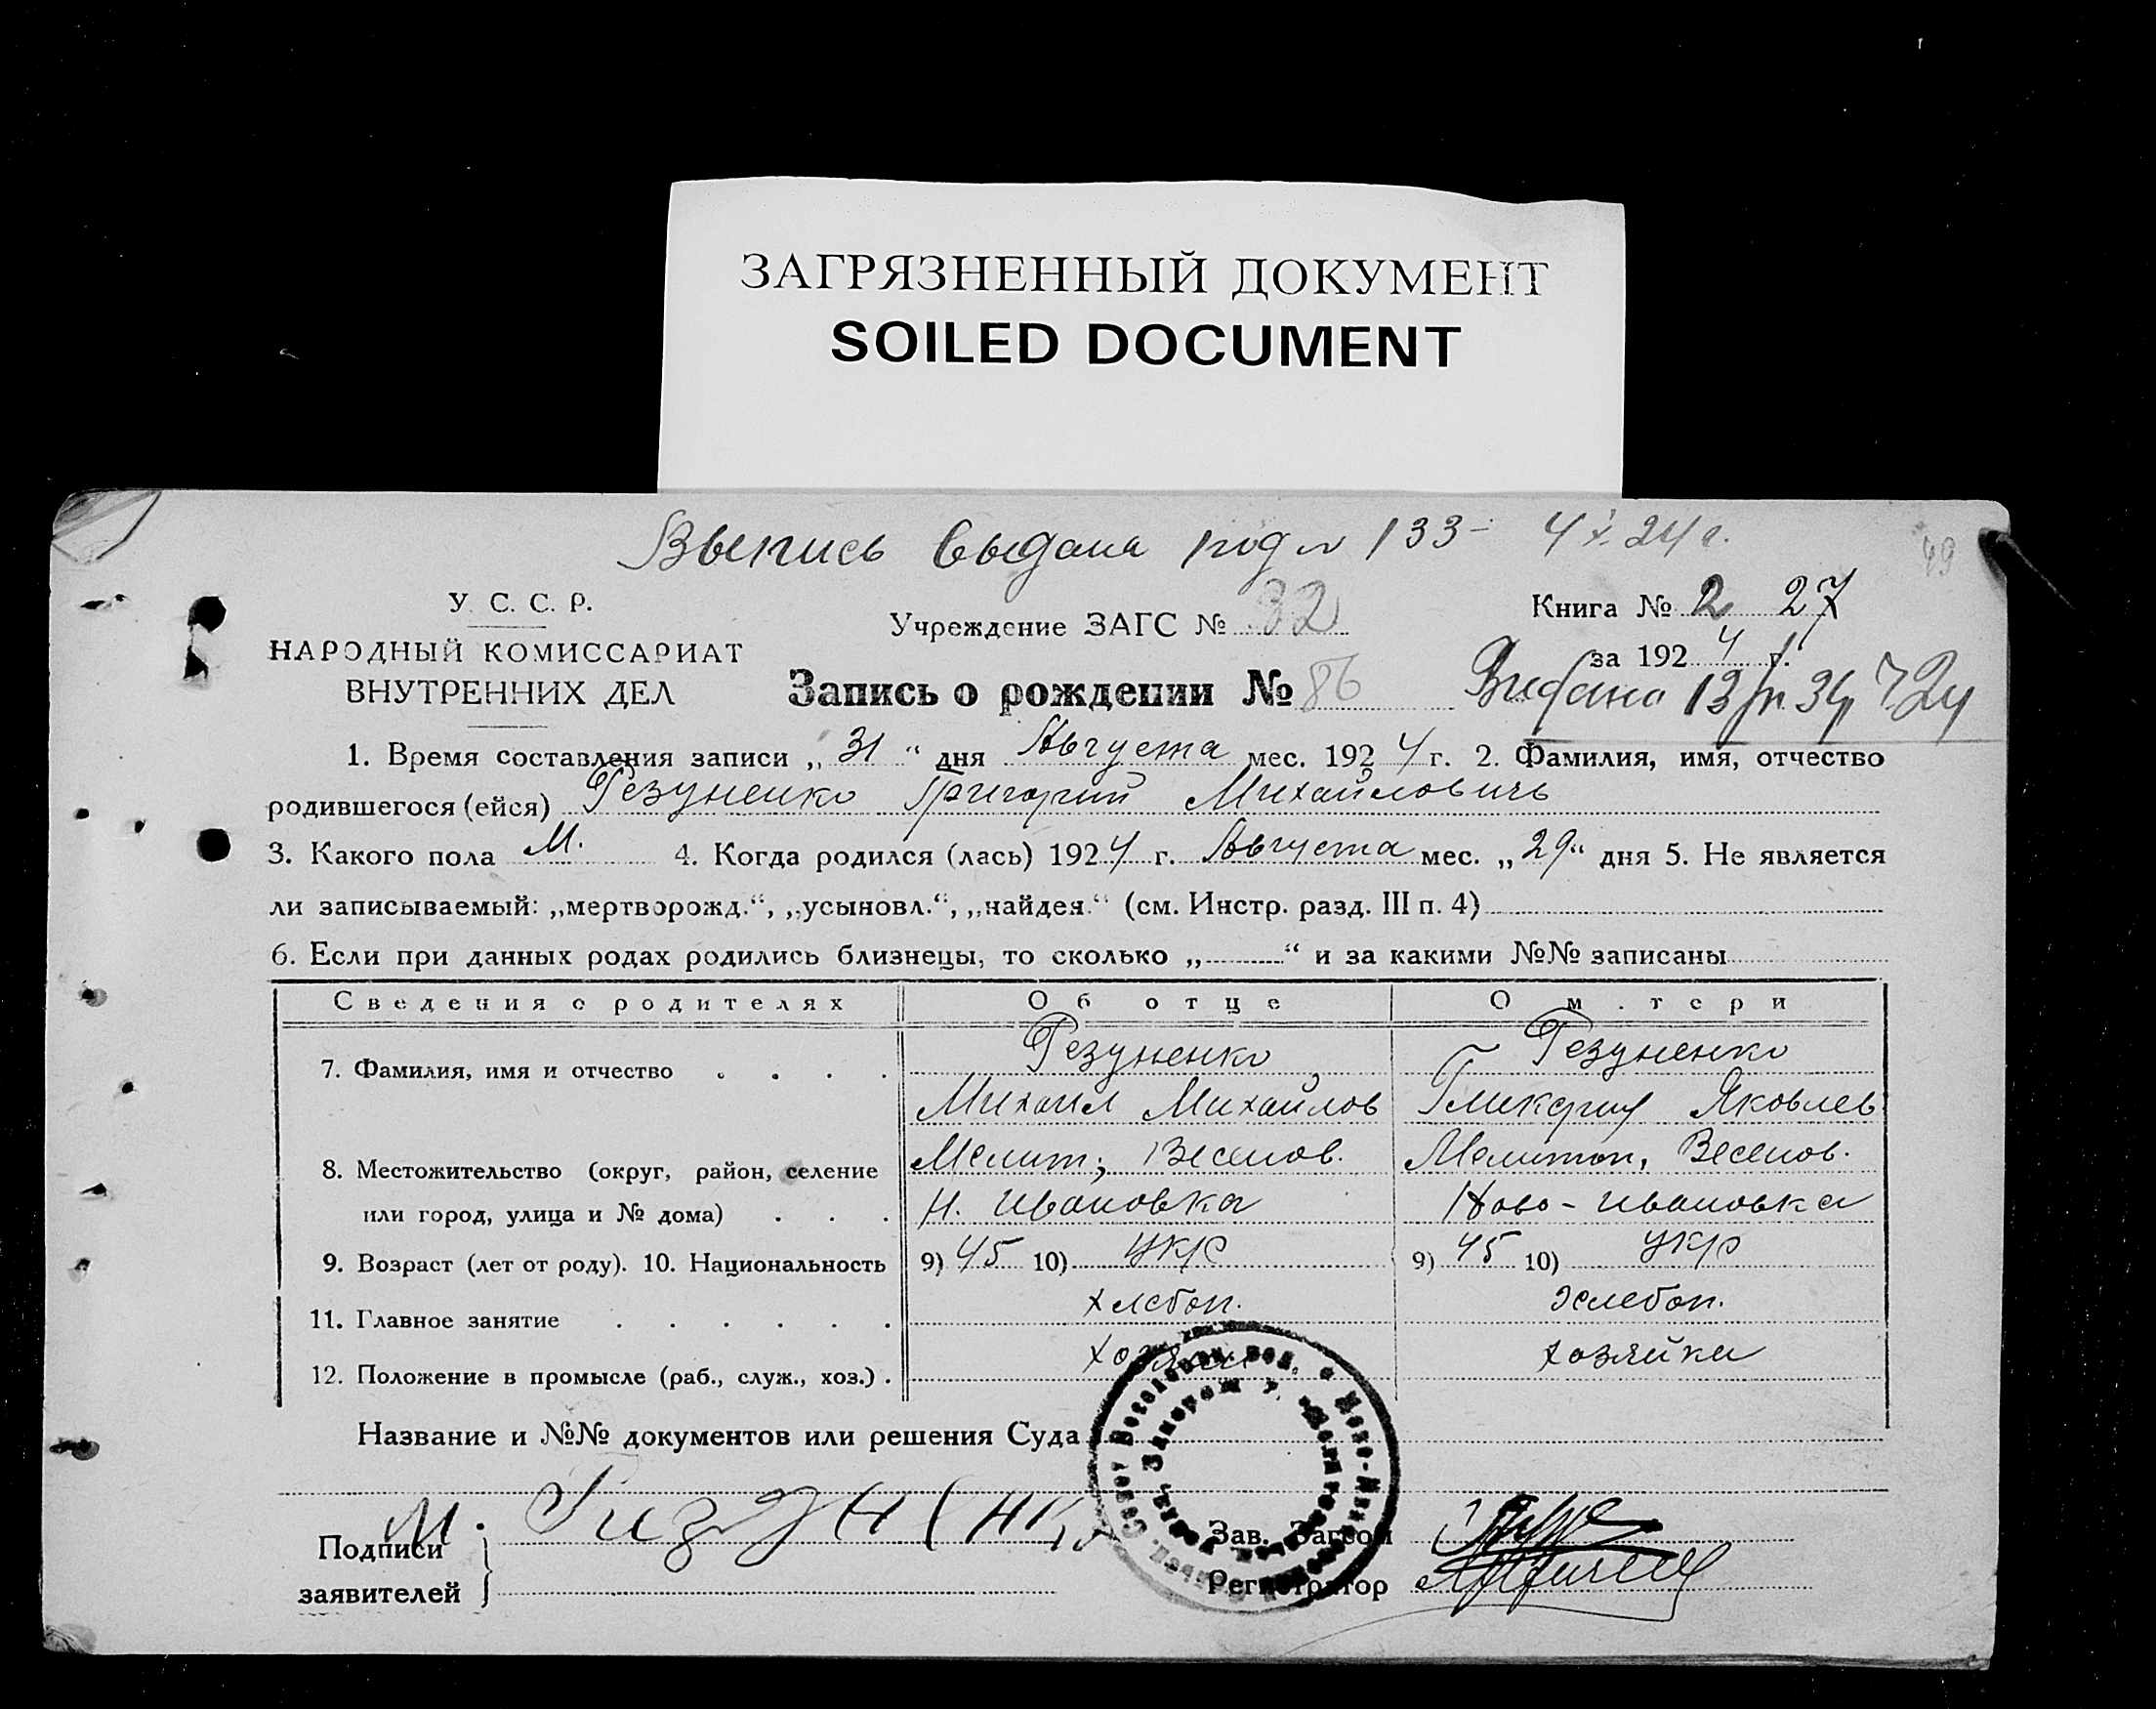 ЗАГРЯЗНЕННЫЙ ДОКУМЕНТ
SOILED DOCUMENT
Выпись выдана под № 133 - 4 X. 24 г.
49
У. С. С. Р.
НАРОДНЫЙ КОМИССАРИАТ
ВНУТРЕННИХ ДЕЛ
Учреждение ЗАГС № 32
Запись о рождении № 86
Книга № 2 27
за 1924 г.
Видано 13
1. Время составления записи „31“ дня Августа мес. 1924 г. 2. Фамилия, имя, отчество
родившегося (ейся) Резуненко Григорий Михайловичь
3. Какого пола М. 4. Когда родился (лась) 1924 г. Августа мес. „29“ дня 5. Не является
ли записываемый: „мертворожд.“, „усыновл.“, „найден.“ (см. Инстр. разд. III п. 4)
6. Если при данных родах родились близнецы, то сколько „ “ и за какими №№ записаны
Сведения о родителях Об отце О м.тери
7. Фамилия, имя и отчество . . . . Резуненко Резуненко
Михаил Михайлов Гликерия Яковлев
8. Местожительство (округ, район, селение Мелит; Веселов. Мелитоп, Веселов.
или город, улица и № дома) . . . Н. Ивановка Ново-Ивановка
9. Возраст (лет от роду). 10. Национальность 9) 45 10) укр 9) 45 10) укр
11. Главное занятие . . . . . . хлебоп. хлебоп.
12. Положение в промысле (раб., служ., хоз.) . хозяин хозяйка
Название и №№ документов или решения Суда
Подписи
заявителей
М. Ризуненко
Зав. Загсом
Регистратор